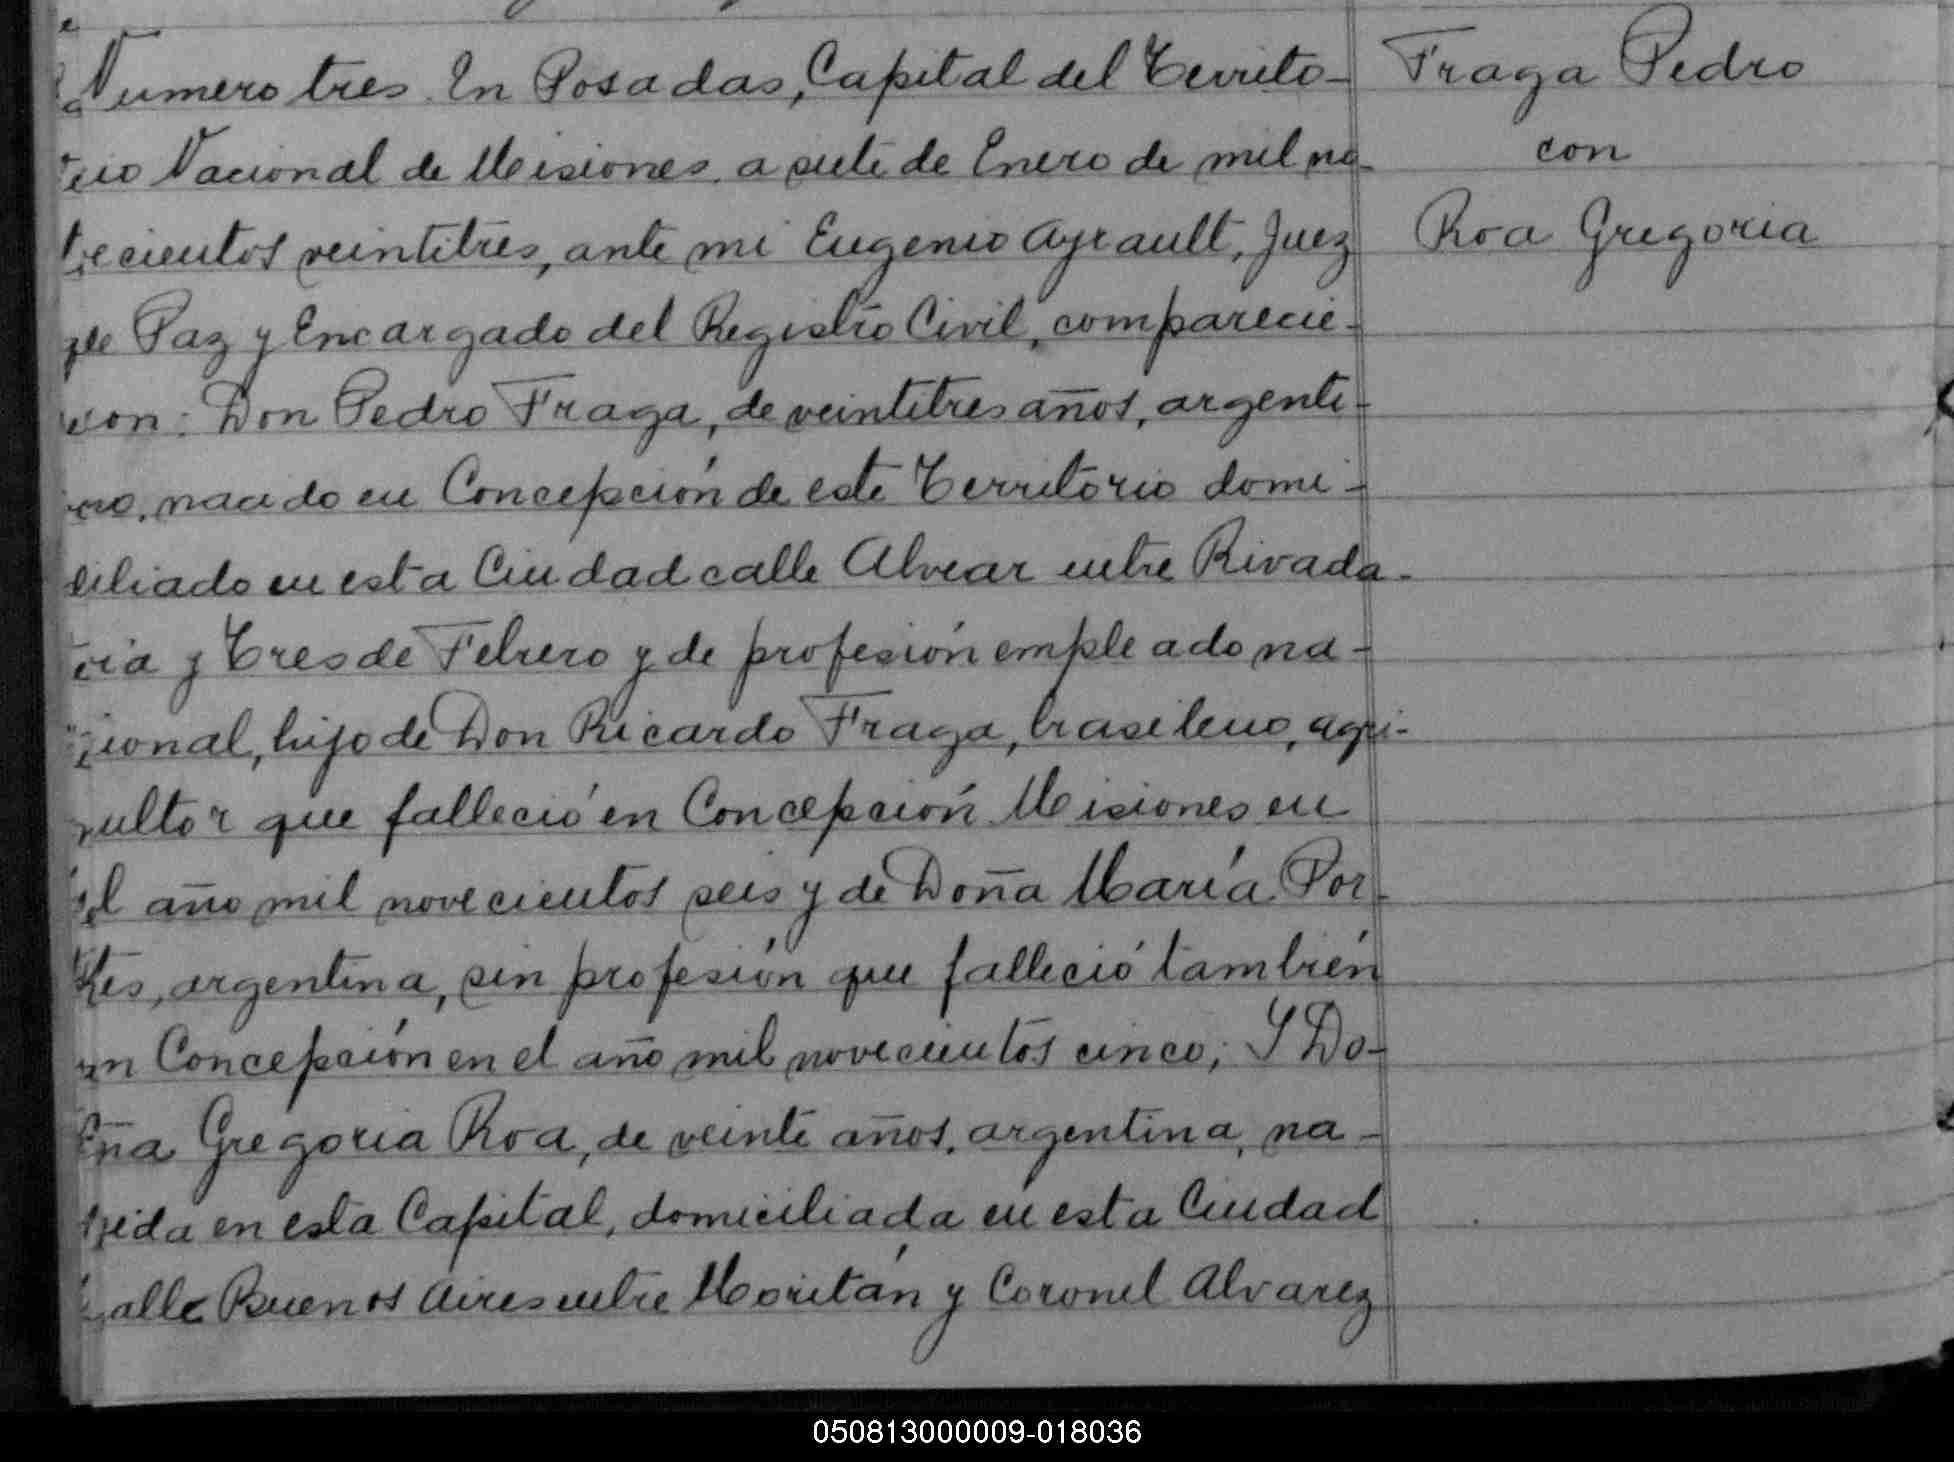 Numero tres. En Posadas, Capital del Territo-
rio Nacional de Misiones, a siete de Enero de mil no-
vecientos veintitres, ante mi Eugenio Ayrault, Juez
de Paz y Encargado del Registro Civil, comparecie-
ron: Don Pedro Fraga, de veintitres años, argenti-
no, nacido en Concepción de este Territorio domi-
ciliado en esta Ciudad calle Alvear entre Rivada-
via y Tres de Febrero y de profesión empleado na-
cional, hijo de Don Ricardo Fraga, brasileno, agri-
cultor que falleció en Concepción Misiones en
el año mil novecientos seis y de Doña María Por-
tes, argentina, sin profesión que falleció también
en Concepción en el año mil novecientos cinco; Y Do-
ña Gregoria Roa, de veinte años, argentina, na-
cida en esta Capital, domiciliada en esta Ciudad
calle Buenos Aires entre Moritán y Coronel Alvarez
Fraga Pedro
con
Roa Gregoria
050813000009-018036